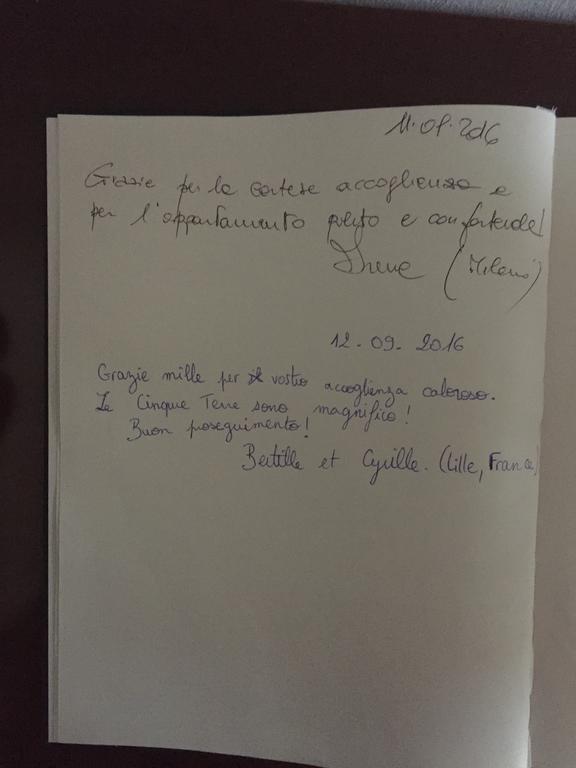 11.09.2016
Grazie per la cortese accoglienza e
per l'appartamento pulito e confortevole!
Irene (Milano)
12.09.2016
Grazie mille per vostro accoglienza caloroso.
Le Cinque Terre sono magnifico!
Buon proseguimento!
Bertille et Cyrille. (Lille, France)